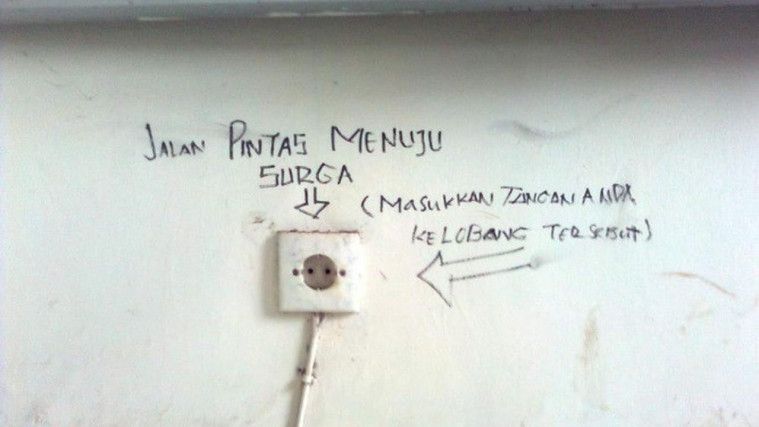 JALAN PINTAS MENUJU
SURGA
(MASUKKAN TANGAN ANDA
KELOBANG TERSEBUT)